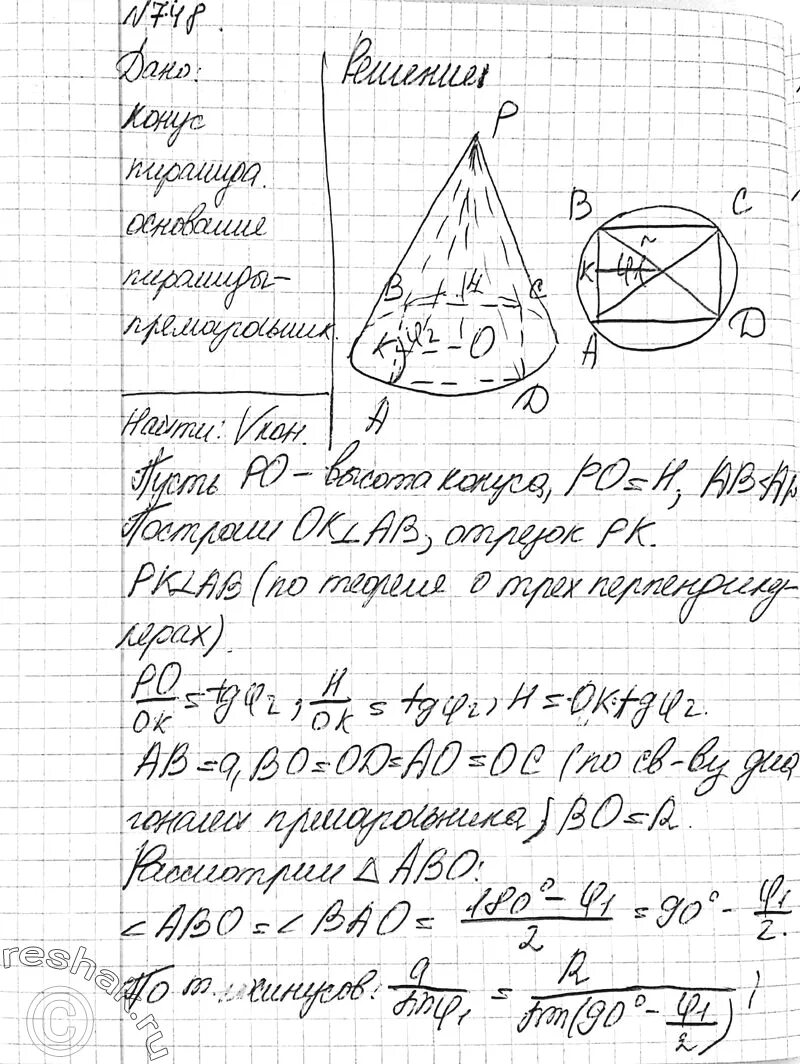 N748.
Дано:
Решение:
конус
пирамида.
основание
пирамиды-
прямоугольник.
P
B
C
H
K
φ2
O
A
D
B
C
K
φ1
A
D
Найти: Vкон.
Пусть PO - высота конуса, PO = H, AB<AD
Построим OK⊥AB, отрезок PK.
PK⊥AB (по теореме о трех перпендику-
лярах).
PO/OK = tgφ2, H/OK = tgφ2, H = OK·tgφ2.
AB = a, BO=OD=AO=OC (по св-ву диа
гоналей прямоугольника) BO=R.
Рассмотрим △ABO:
∠ABO = ∠BAO = (180° - φ1)/2 = 90° - φ1/2.
По т. синусов: a/sinφ1 = R/sin(90° - φ1/2);
reshak.ru
©